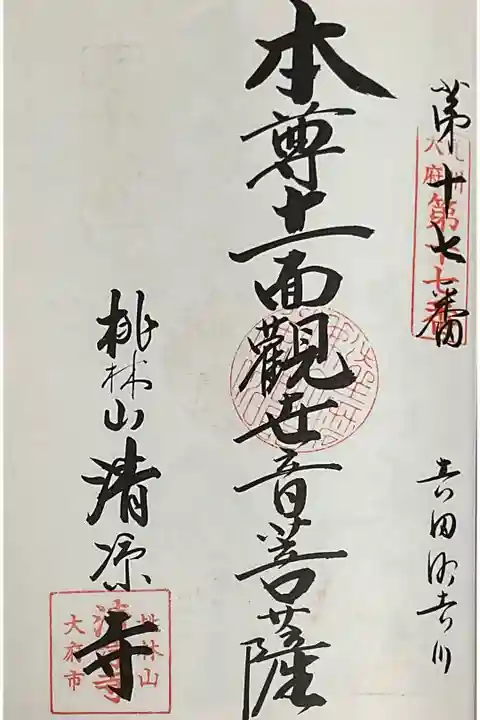 第十七番
大府
第十七番
本尊十一面觀世音菩薩
桃林山清凉寺
桃林山
清涼寺
大府市